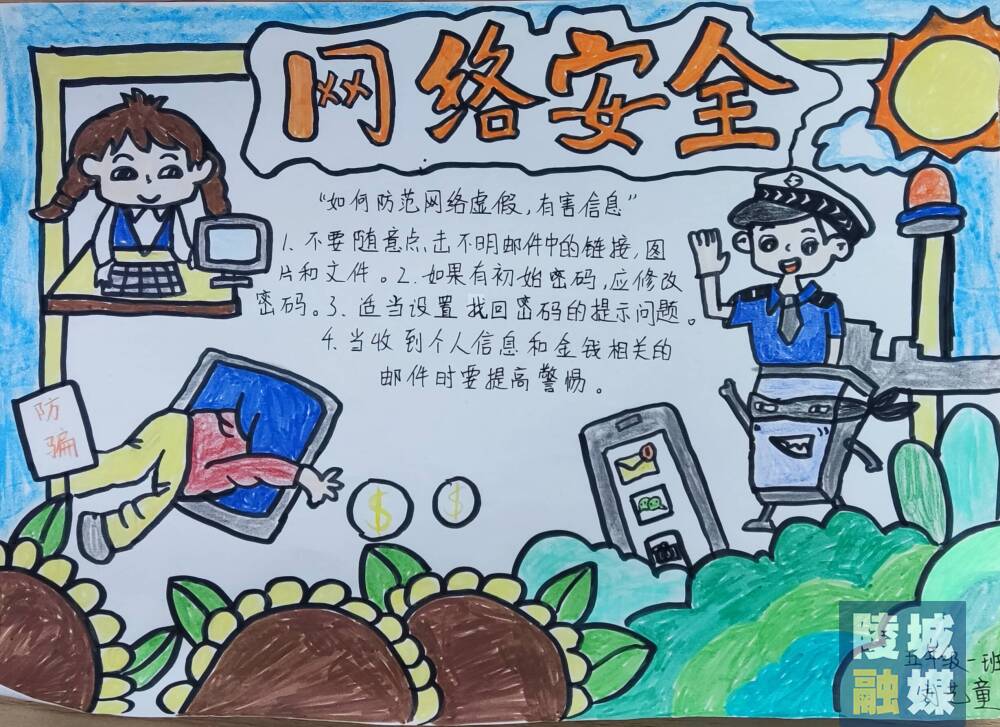 网络安全
“如何防范网络虚假,有害信息”
1.不要随意点击不明邮件中的链接,图
片和文件。2.如果有初始密码,应修改
密码。3.适当设置找回密码的提示问题。
4.当收到个人信息和金钱相关的
邮件时要提高警惕。
防
骗
$ $
陵城
融媒
五年级一班